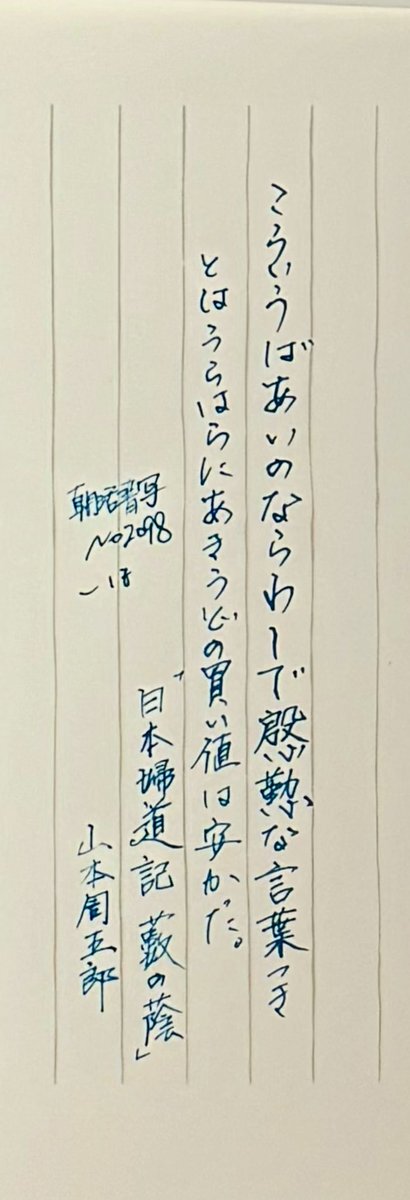 こういうばあいのならわしで慇懃な言葉つき
とはうらはらにあきうどの買い値は安かった。
「日本婦道記 藪の蔭」
山本周五郎
朝活書写
No2098